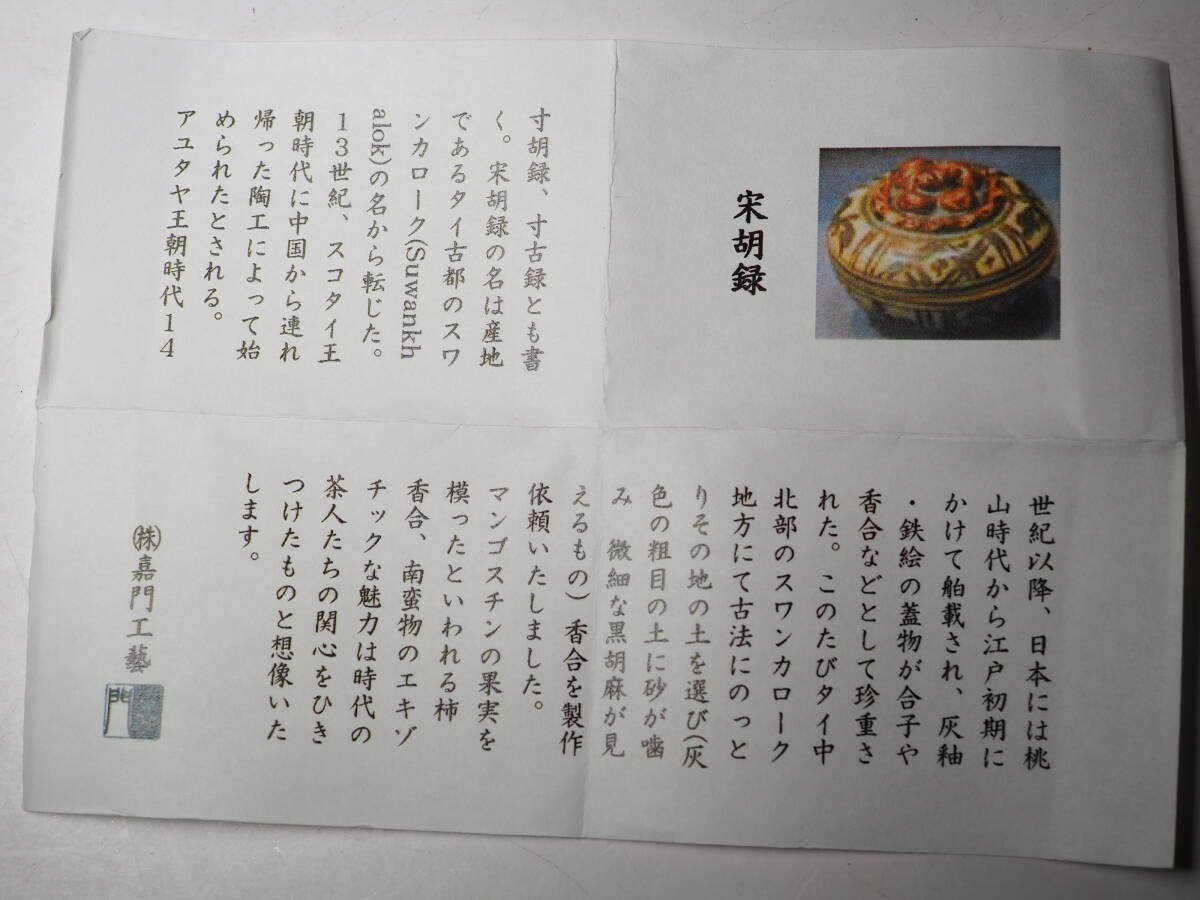 宋胡録
寸胡録、寸古録とも書
く。宋胡録の名は産地
であるタイ古都のスワ
ンカローク(Suwankh
alok)の名から転じた。
13世紀、スコタイ王
朝時代に中国から連れ
帰った陶工によって始
められたとされる。
アユタヤ王朝時代14
世紀以降、日本には桃
山時代から江戸初期に
かけて舶載され、灰釉
・鉄絵の蓋物が合子や
香合などとして珍重さ
れた。このたびタイ中
北部のスワンカローク
地方にて古法にのっと
りその地の土を選び(灰
色の粗目の土に砂が噛
み 微細な黒胡麻が見
えるもの)香合を製作
依頼いたしました。
マンゴスチンの果実を
模ったといわれる柿
香合、南蛮物のエキゾ
チックな魅力は時代の
茶人たちの関心をひき
つけたものと想像いた
します。
㈱嘉門工藝
門